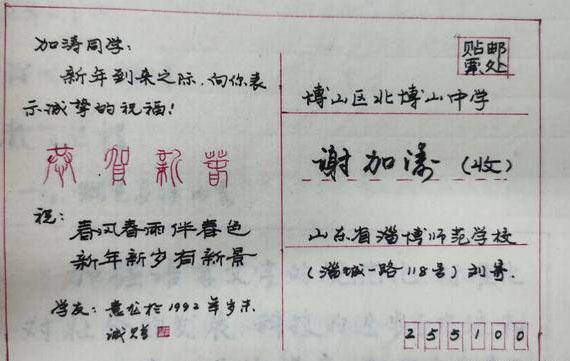 加涛同学:
新年到来之际,向你表
示诚挚的祝福!
恭贺新
祝:
春风春雨伴春色
新年新岁有新景
学友: 于1992年岁末
诚
贴邮
票处
博山区北博山中学
谢加涛(收)
山东省淄博师范学校
(淄城一路118号)刘寄.
255100